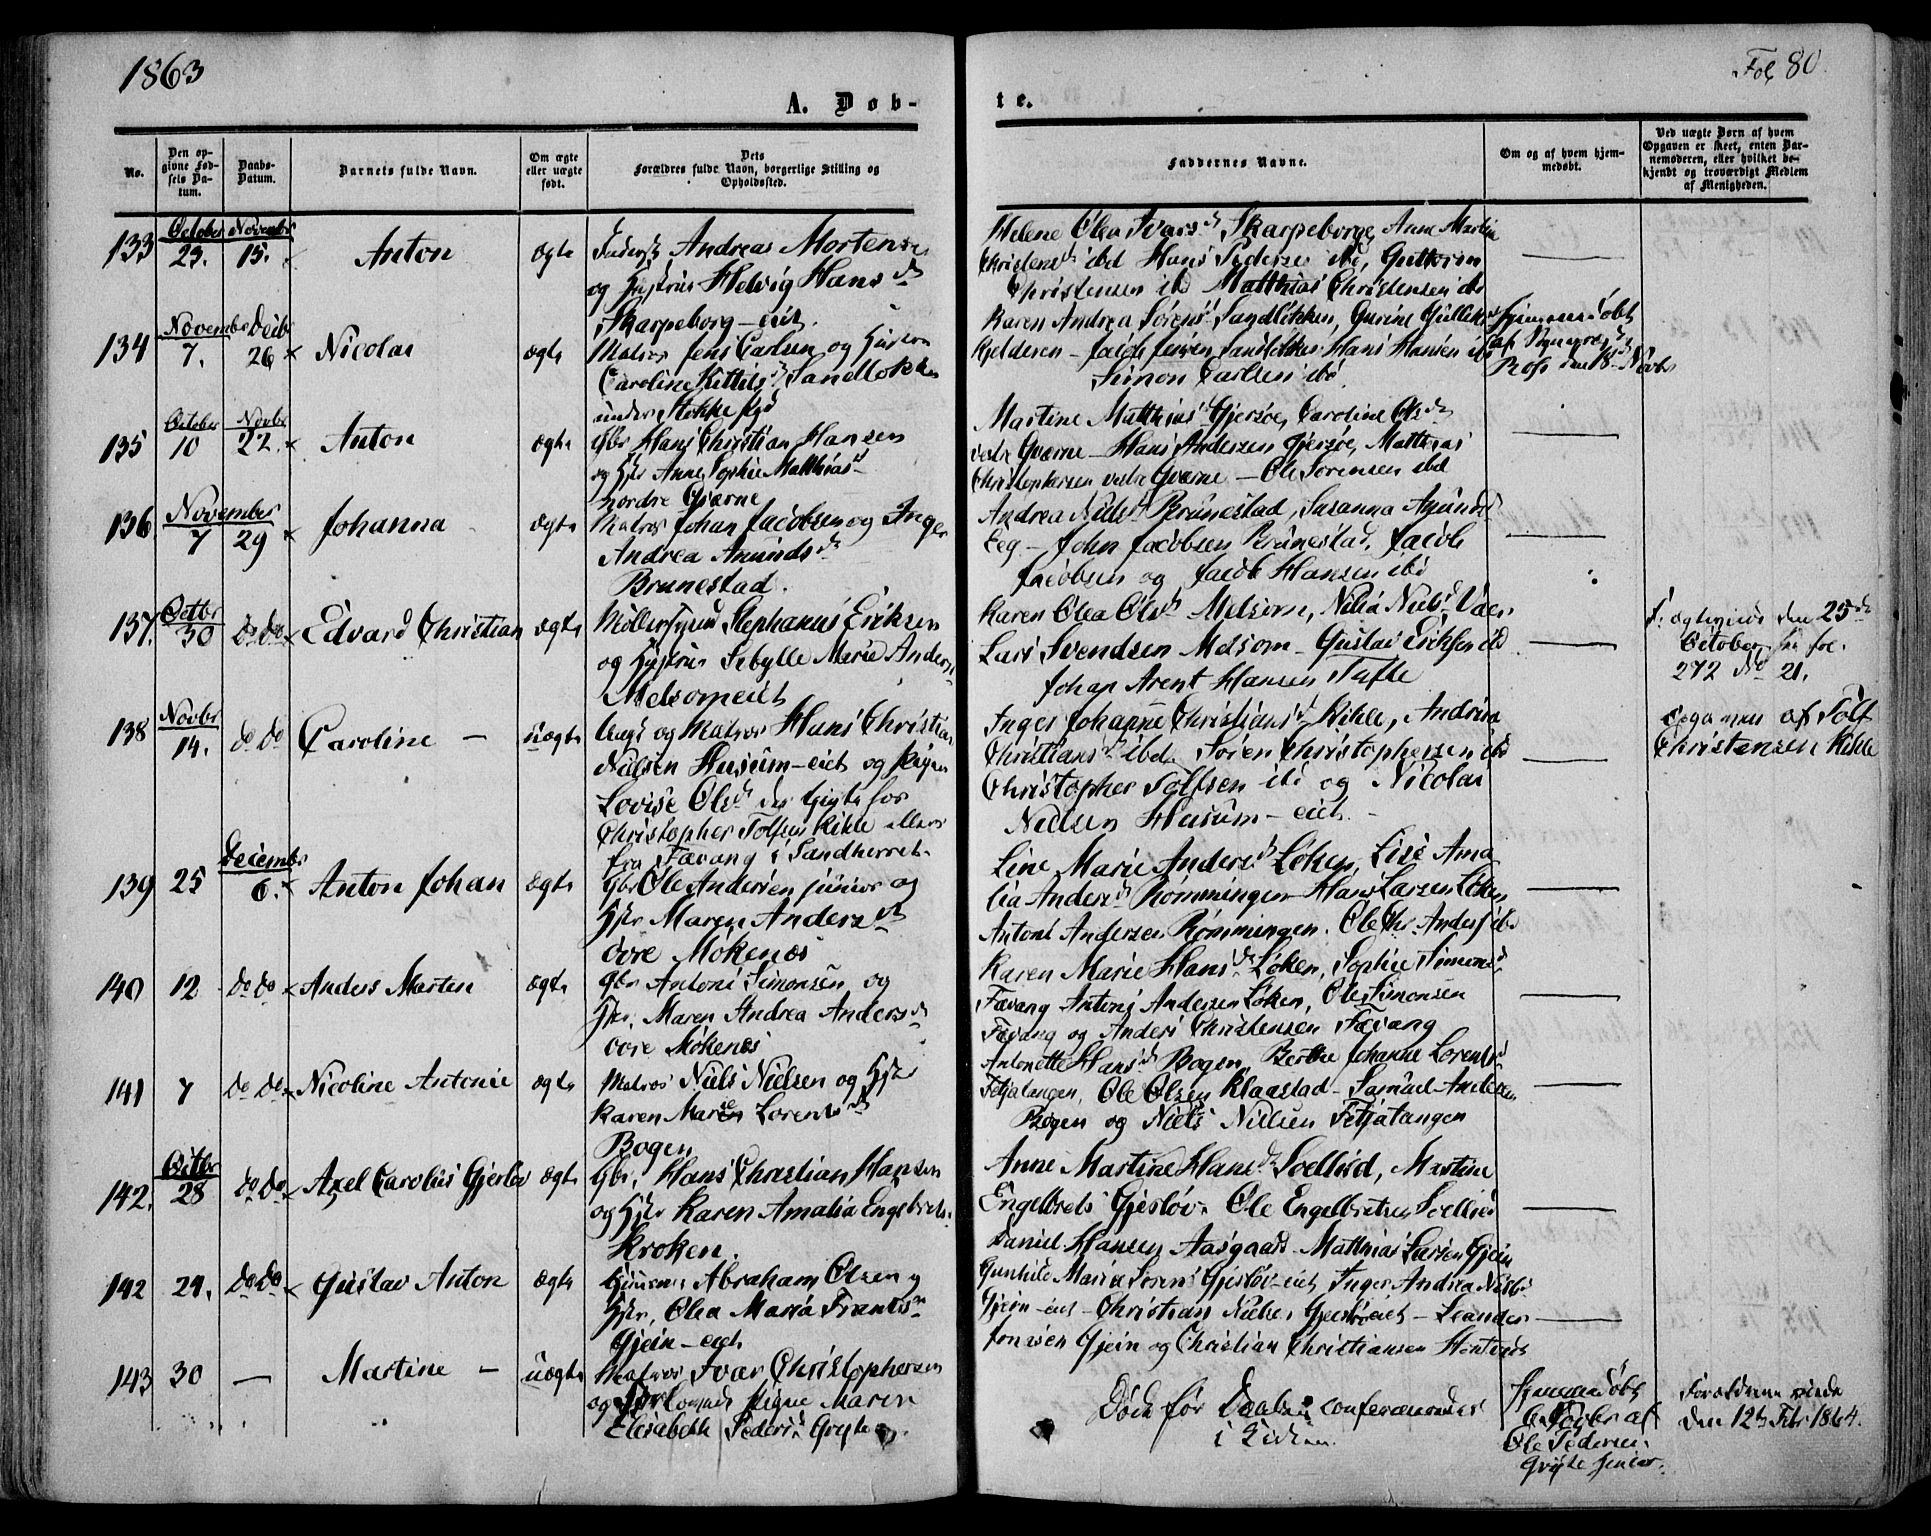 1863
Fol 80.
A. Døb-
te.
No.
Den op-
givne Fød-
sels Da-
tum.
Daabs-
Datum.
Barnets fulde Navn.
Om ægte
eller uægte
født.
Dets
Forældres fulde Navn, borgerlige Stilling og
Opholdssted.
Faddernes Navne.
Om og af hvem hjem-
medøbt.
Ved uægte Børn af hvem
Opgaven er skeet, enten Bar-
nemoderen, eller hvilket be-
kjendt og troværdigt Medlem
af Menigheden.
October Novembr
133 23. 15. Anton ægte Andreas Mortensen
og Hustrue Helvig Hans d
Skarpeborg-eiet.
Helene Olea Ivars d Skarpeborg, Anne Martin
ibd Hans Pedersen ibd, Guttorm
Christensen ibd Matthias Christensen ibd
November Decbr
134 7. 26 Nicolai ægte Matros Jens Carlsen og Hustru
Caroline Kittils d Sandløkken
under Stokke
Karen Andrea Sørens Sandløkken, Gurine Gulliks
Kjelderen - Jacob Jensen Sandløkken Hans Hansen ibd
Simon Carlsen ibd
Hjemmedøbt
af
den 18 Novbr
October Novbr
135 10 22. Anton ægte Gbr Hans Christian Hansen
og Hstr Anne Sophie Matthias d
nordre Gværne
Martine Matthias d Gjersøe, Caroline Ols d
vestre Gværne - Hans Andersen Gjersøe, Matthias
Christophersen vestre Gværne - Ole Sørensen ibd
November
136 7 29 Johanna ægte Matros Johan Jacobsen og Inger
Andrea Amunds d
Brunestad.
Andrea Niels d Brunestad, Susanna Amunds
Eeg - John Jacobsen Brunestad, Jacob
Jacobsen og Jacob Hansen ibd
Octbr
137. 30 do do Edvard Christian ægte Møllersvend Stephanus Eriksen
og Hustrue Sibylle Marie Anders d
Melsomeiet
Karen Olea Ols d Melsom, Nilia Niels d Vaer
Lars Svendsen Melsom - Gustav Eriksen ibd
Johan Arent Hansen Tufte
den 25 de
October
272 No 21.
Novbr
138 14. do do Caroline - uægte Ungk og Matros Hans Christian
Nielsen Husum-eiet og Pigen
Lovise Ols d der Gigte for
Christopher Tolfsen Kihle
fra Fævang i Sandherret
Inger Johanne Christians d Kihle, Andrine
Christians d ibd Søren Christophersen ibd
Christopher Tolfsen ibd og Nicolai
Nielsen Husum-eiet.
Opga nu af Tolf
Christensen Kihle
Decembr
139 25 6. Anton Johan ægte Gbr Ole Andersen junior og
Hstr Maren Anders d
øvre Mokenæs
Line Marie Anders d Løken, Lise Ama
lia Anders d Rømmingen Hans Larsen Løken
Antoni Andersen Rømmingen. Ole Chr. Anders ibd
140 12 do do Anders Morten ægte Gbr Antoni Simonsen og
Hstr. Maren Andrea Anders d
øvre Mokenæs
Karen Marie Hans d Løken, Sophie Simons d
Fævang Antoni Andersen Løken, Ole Simonsen
Fævang og Anders Christensen Fævang
141 7 do do Nicoline Antonie ægte Matros Niels Nielsen og Hstr
Karen Maren Lorents d
Bogen
Antonette Hans d Bogen, Berthe Johanne Lorents d
Fetjatangen, Ole Olsen Klaastad - Samuel Andersen
Bogen og Niels Nielsen Fetjatangen
Octbr
142. 28 do do Axel Carolius Gjerløv ægte Gbr. Hans Christian Hansen
og Hstr Karen Amalia Engebrets
Kroken.
Anne Martine Hans d Soelliød, Martine
Engelbrets Gjesløv. Ole Engelbretsen Soelliød
Daniel Hansen Aasgaard. Matthias Larsen Gjein
142 24. do do Gustav Anton ægte Abraham Olsen og
Hstr. Olea Maria Frants d
Gjein-eiet
Gunhild Maria Sørens Gjesløv-eiet, Inger Andrea Niels d
Gjein-eiet - Christian Nielsen Gjesløveiet - Leander
Jonasen Gjein og Christian Christiansen
143 30 - Martine - uægte Matros Ivar Christophersen
og Forlovede Pigen Maren
Elisabeth Peders d Gryte
Døde før Daaben
i Kirken.
Hjemmedøbt
af
Ole Pedersen
Gryte senior.
Forældrene viede
den 12te Febr 1864.